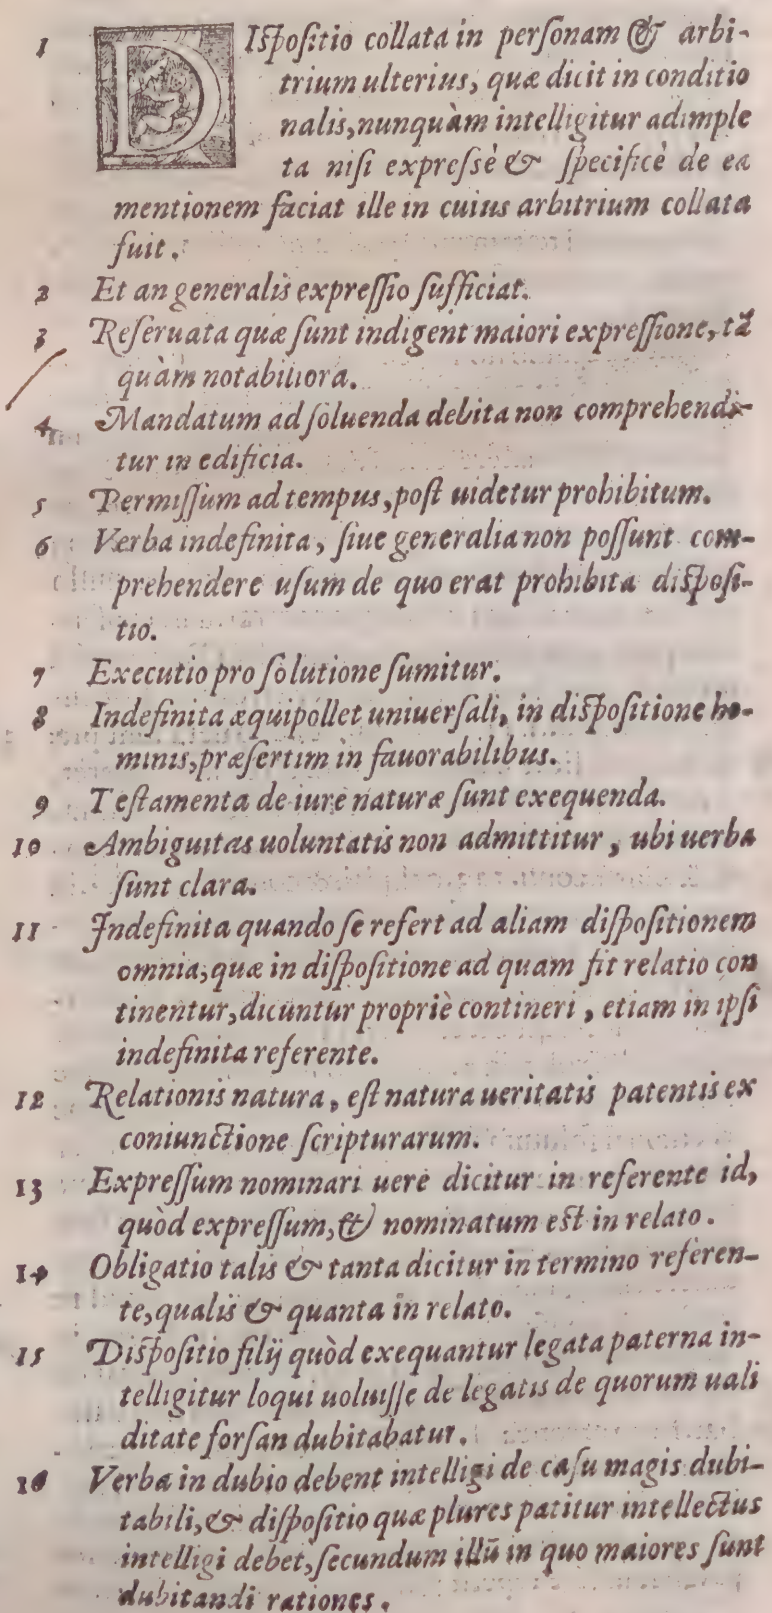 1 DIspositio collata in personam & arbi-
trium ulterius, quæ dicit in conditio
nalis, nunquàm intelligitur adimple
ta nisi expressè & specificè de ea
mentionem faciat ille in cuius arbitrium collata
fuit.
2 Et an generalis expressio sufficiat.
3 Reseruata quæ sunt indigent maiori expressione, tã
quàm notabiliora.
4 Mandatum ad soluenda debita non comprehendi-
tur in edificia.
5 Permissum ad tempus, post uidetur prohibitum.
6 Verba indefinita, siue generalia non possunt com-
prehendere usum de quo erat prohibita disposi-
tio.
7 Executio pro solutione sumitur.
8 Indefinita æquipollet uniuersali, in dispositione ho-
minis, præsertim in fauorabilibus.
9 Testamenta de iure naturæ sunt exequenda.
10 Ambiguitas uoluntatis non admittitur, ubi uerba
sunt clara.
11 Indefinita quando se refert ad aliam dispositionem
omnia, quæ in dispositione ad quam fit relatio con
tinentur, dicuntur propriè contineri, etiam in ipsi
indefinita referente.
12 Relationis natura, est natura ueritatis patentis ex
coniunctione scripturarum.
13 Expressum nominari uere dicitur in referente id,
quòd expressum, & nominatum est in relato.
14 Obligatio talis & tanta dicitur in termino referen-
te, qualis & quanta in relato.
15 Dispositio filij quòd exequantur legata paterna in-
telligitur loqui uoluisse de legatis de quorum uali
ditate forsan dubitabatur.
16 Verba in dubio debent intelligi de casu magis dubi-
tabili, & dispositio quæ plures patitur intellectus
intelligi debet, secundum illũ in quo maiores sunt
dubitandi rationes.